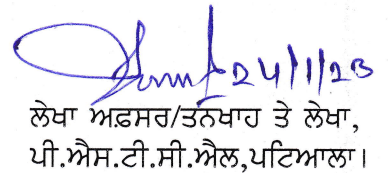 24/1/23
ਲੇਖਾ ਅਫ਼ਸਰ/ਤਨਖਾਹ ਤੇ ਲੇਖਾ,
ਪੀ.ਐਸ.ਟੀ.ਸੀ.ਐਲ,ਪਟਿਆਲਾ।